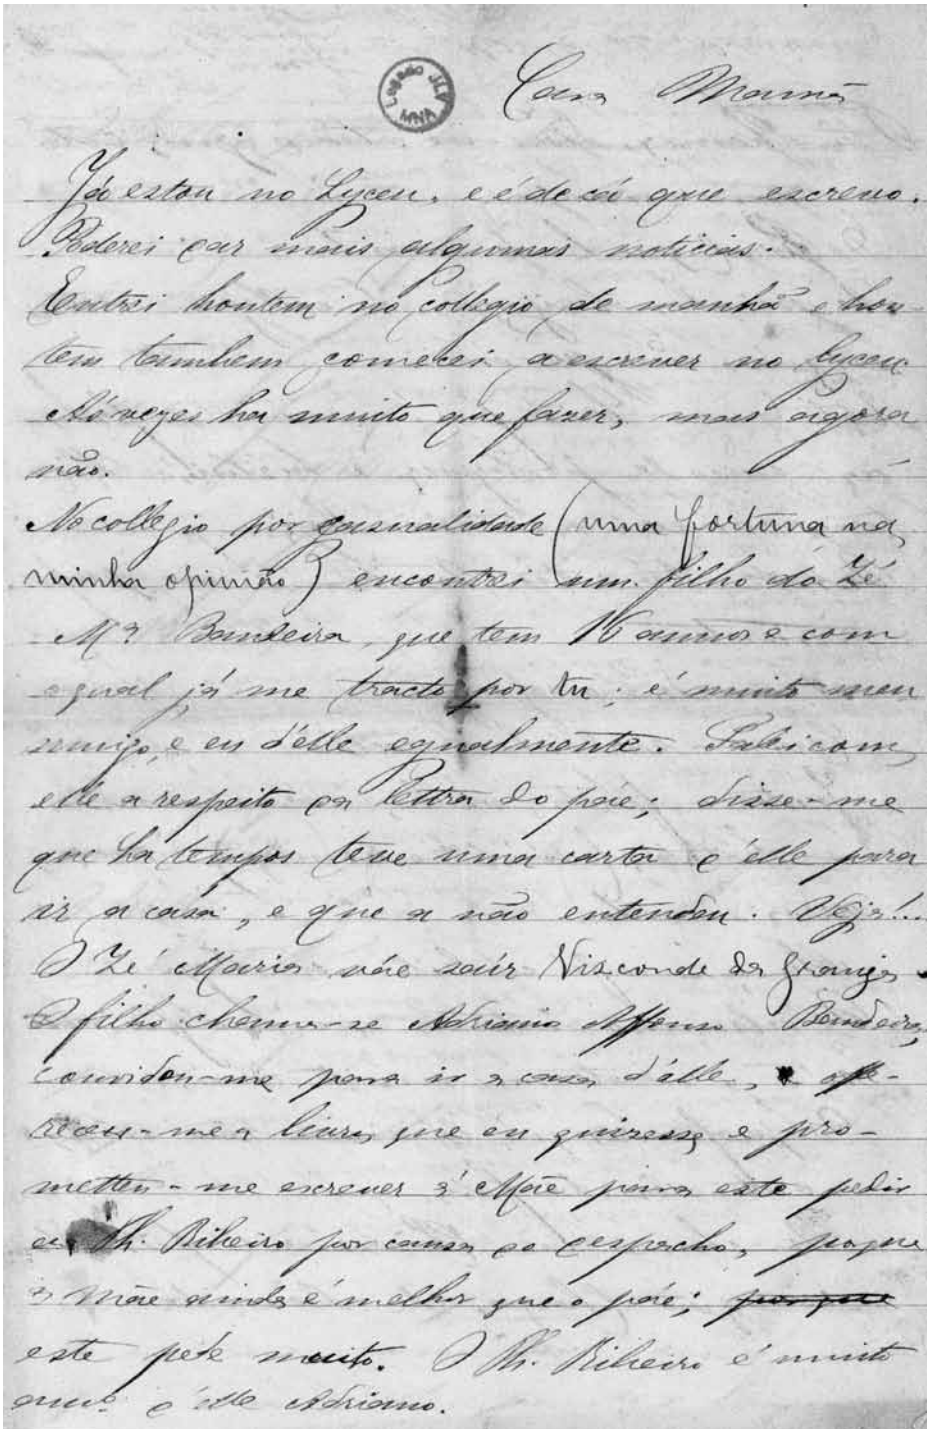 Legado JLV
MNA
Cara Mamã
Já estou no Lyceu, e é de cá que escrevo.
Poderei dar mais algumas noticias.
Entrei hontem no collegio de manhã e hon-
tem tambem comecei a escrever no lyceu
Ás vezes ha muito que fazer, mas agora
não.
No collegio por casualidade (uma fortuna na
minha opinião) encontrei um filho do Zé
Mª Bandeira, que tem 16 annos e com
o qual já me tracto por tu; é muito meu
amigo, e eu d'elle egualmente. Falei com
elle a respeito da lettra do páe; disse-me
que ha tempos teve uma carta d'elle para
ir a casa, e que a não entendeu. Veja!...
O Zé Maria váe saír Visconde da Granja.
O filho chama-se Adriano Affonso Bandeira,
convidou-me para ir a casa d'elle, e offe-
receu-me a livros que eu quizesse, e pro-
metteu-me escrever á Mãe para este pedir
ao Th. Ribeiro por causa do despacho, porque
a mãe ainda é melhor que o páe; porque
este pede muito. O Th. Ribeiro é muito
amº d'elle Adriano.